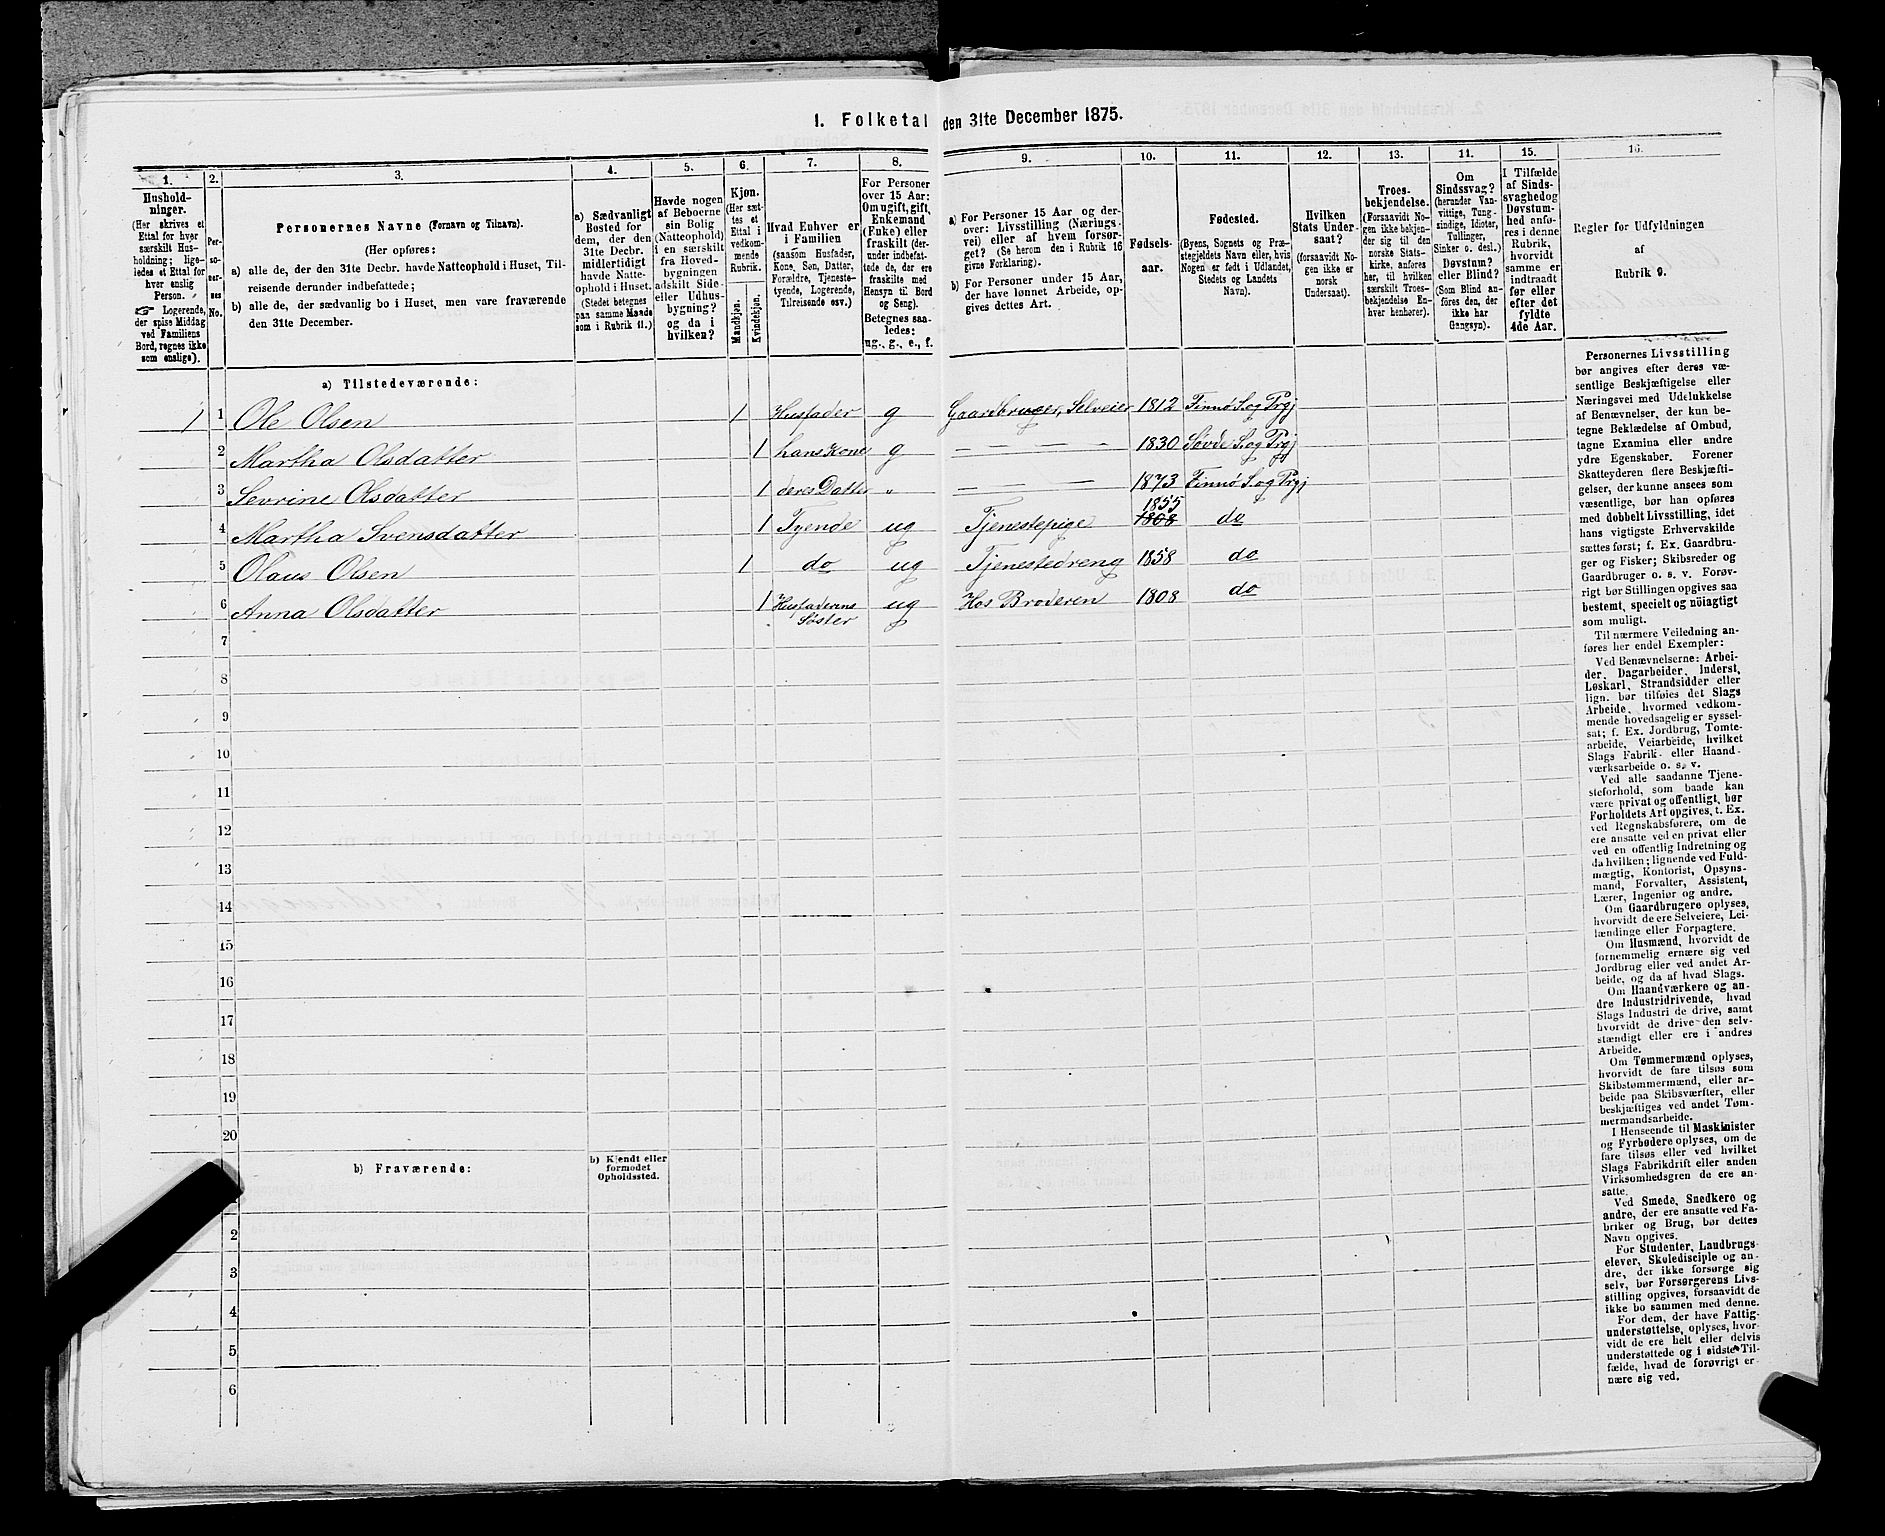 1. Folketal den 31te December 1875.
1.
2.
3.
4.
5.
6.
7.
8.
9.
10.
11.
12.
13.
11.
15.
16.
Hushold-
ninger.
(Her skrives et
Ettal for hver
særskilt Hus-
holdning; lige-
ledes et Ettal for
hver enslig
Person.
☞ Logerende,
der spise Middag
ved Familiens
Bord, regnes ikke
som enslige).
Per-
so-
ner-
nes
No.
Personernes Navne (Fornavn og Tilnavn).
(Her opføres:
a) alle de, der den 31te Decbr. havde Natteophold i Huset, Til-
reisende derunder indbefattede;
b) alle de, der sædvanlig bo i Huset, men vare fraværende
den 31te December.
a) Sædvanligt
Bosted for
dem, der den
31te Decbr.
midlertidigt
havde Natte-
ophold i Huset.
(Stedet betegnes
paa samme Maade
som i Rubrik 11.)
Havde nogen
af Beboerne
sin Bolig
(Natteophold)
i en særskilt
fra Hoved-
bygningen
adskilt Side-
eller Udhus-
bygning?
og da i
hvilken?
Kjøn.
(Her sæt-
tes et
Ettal i
vedkom-
mende
Rubrik.
Mandkjøn.
Kvindekjøn.
Hvad Enhver er
i Familien
(saasom Husfader,
Kone, Søn, Datter,
Forældre, Tjeneste-
tyende, Logerende,
Tilreisende osv.)
For Personer
over 15 Aar:
Om ugift, gift,
Enkemand
(Enke) eller
fraskilt (der-
under indbefat-
tede de, der ere
fraskilte med
Hensyn til Bord
og Seng).
Betegnes saa-
ledes:
ug., g., e., f.
a) For Personer 15 Aar og der-
over: Livsstilling (Nærings-
vei) eller af hvem forsør-
get? (Se herom den i Rubrik 16
givne Forklaring).
b) For Personer under 15 Aar,
der have lønnet Arbeide, op-
gives dettes Art.
Fødsels-
aar.
Fødested.
(Byens, Sognets og Præ-
stegjeldets Navn eller, hvis
Nogen er født i Udlandet,
Stedets og Landets
Navn).
Hvilken
Stats Under-
saat?
(forsaavidt No-
gen ikke er
norsk
Undersaat).
Troes-
bekjendelse.
(Forsaavidt No-
gen ikke bekjen-
der sig til den
norske Stats-
kirke, anføres
her, til hvilken
særskilt Troes-
bekjendelse En-
hver henhører).
Om
Sindssvag?
(herunder Van-
vittige, Tung-
sindige, Idioter,
Tullinger,
Sinker o. desl.)
Døvstum?
eller Blind?
(Som Blind an-
føres den, der
ikke har
Gangsyn).
I Tilfælde
af Sinds-
svaghed og
Døvstum-
hed anfø-
res i denne
Rubrik,
hvorvidt
samme er
indtraadt
før eller
efter det
fyldte
4de Aar.
Regler for Udfyldningen
af
Rubrik 9.
a) Tilstedeværende:
1 1 Ole Olsen 1 Husfader g Gaardbruger, Selveier 1812 Finnø S. og Prgj
2 Martha Olsdatter 1 hans Kone g — — — 1830 Søvde S. og Prgj
3 Sevrine Olsdatter 1 deres Datter " — — — 1873 Finnø S. og Prgj
4 Martha Svensdatter 1 Tyende ug Tjenestepige 1808 1855 do
5 Olaus Olsen 1 do ug Tjenestedreng 1858 do
6 Anna Olsdatter 1 Husfaderens Søster ug Hos Broderen 1808 do
7
8
9
10
11
12
13
14
15
16
17
18
19
20
b) Fraværende:
b) Kjendt eller
formodet
Opholdssted.
2
3
4
5
6
Personernes Livsstilling
bør angives efter deres væ-
sentlige Beskjæftigelse eller
Næringsvei med Udelukkelse
af Benævnelser, der kun be-
tegne Beklædelse af Ombud,
tagne Examina eller andre
ydre Egenskaber. Forener
Skatteyderen flere Beskjæfti-
gelser, der kunne ansees som
væsentlige, bør han opføres
med dobbelt Livsstilling, idet
hans vigtigste Erhvervskilde
sættes først; f. Ex. Gaardbru-
ger og Fisker; Skibsreder og
Gaardbruger o. s. v. Forøv-
rigt bør Stillingen opgives saa
bestemt, specielt og nöiagtigt
som muligt.
Til nærmere Veiledning an-
føres her endel Exempler:
Ved Benævnelserne: Arbei-
der, Dagarbeider, Inderst,
Løskarl, Strandsidder eller
lign. bør tilføies det Slags
Arbeide, hvormed vedkom-
mende hovedsagelig er syssel-
sat; f. Ex. Jordbrug, Tomte-
arbeide, Veiarbeide, hvilket
Slags Fabrik- eller Haand-
værksarbeide o. s. v.
Ved alle saadanne Tjene-
steforhold, som baade kan
være privat og offentligt, bør
Forholdets Art opgives, t. Ex.
ved Regnskabsførere, om de
ere ansatte ved en privat eller
ved en offentlig Indretning og
da hvilken; lignende ved Fuld-
mægtig, Kontorist, Opsyns-
mand, Forvalter, Assistent,
Lærer, Ingeniør og andre.
Om Gaardbrugere oplyses,
hvorvidt de ere Selveiere, Lei-
lændinge eller Forpagtere.
Om Husmænd, hvorvidt de
fornemmelig ernære sig ved
Jordbrug eller ved andet Ar-
beide, og da af hvad Slags.
Om Haandværkere og an-
dre Industridrivende, hvad
Slags Industri de drive, samt
hvorvidt de drive den selv-
stændigt eller ere i andres
Arbeide.
Om Tømmermænd oplyses,
hvorvidt de fare tilsøs som
Skibstømmermænd, eller ar-
beide paa Skibsværfter, eller
beskjæftiges ved andet Tøm-
mermandsarbeide.
I Henseende til Maskinister
og Fyrbødere oplyses, om de
fare tilsøs eller ved hvilket
Slags Fabrikdrift eller anden
Virksomhedsgren de ere an-
satte.
Ved Smede, Snedkere og
andre, der ere ansatte ved Fa-
briker og Brug, bør dettes
Navn opgives.
For Studenter, Landbrugs-
elever, Skoledisciple og an-
dre, der ikke forsørge sig
selv, bør Forsørgerens Livs-
stilling opgives, forsaavidt de
ikke bo sammen med denne.
For dem, der have Fattig-
understøttelse, oplyses, hvor-
vidt de ere helt eller delvis
understøttede og i sidste Til-
fælde, hvad de forøvrigt er-
nære sig ved.